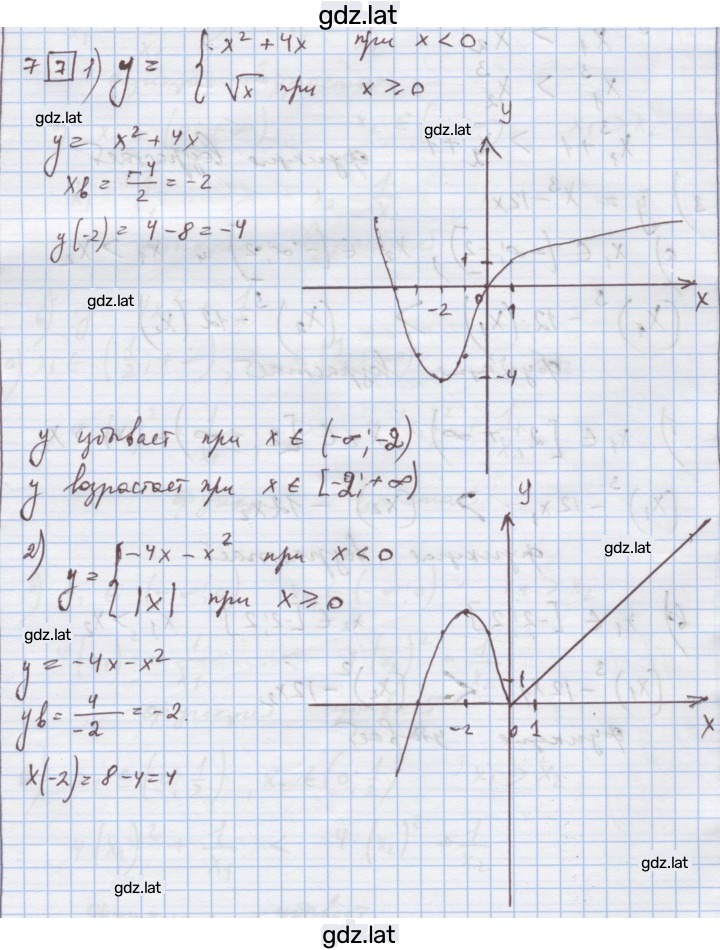 gdz.lat
7 7 1) y = { x² + 4x при x < 0
√x при x ≥ 0
gdz.lat
gdz.lat
y = x² + 4x
xв = -4/2 = -2
y(-2) = 4 - 8 = -4
gdz.lat
y
1
-2 0 1 x
-4
y убывает при x ∈ (-∞; -2)
y возрастает при x ∈ [-2; +∞)
2) y = { -4x - x² при x < 0
|x| при x ≥ 0
gdz.lat
gdz.lat
y = -4x - x²
yв = 4/-2 = -2.
x(-2) = 8 - 4 = 4
y
1
-2 0 1 x
gdz.lat
gdz.lat
gdz.lat